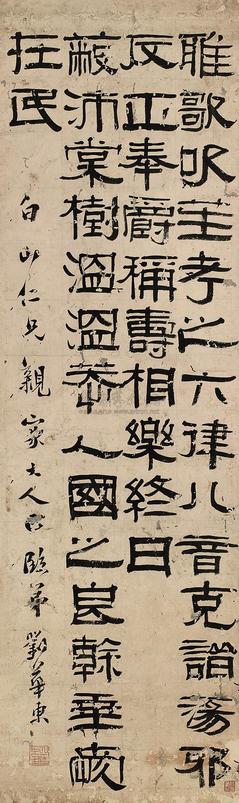 雅歌吹笙考之六律八音克諧蕩邪
反正奉爵稱壽相樂終日
蔽沛棠樹溫溫恭人國之良幹垂愛
在民
白山仁兄親家大人正臨弟劉華東